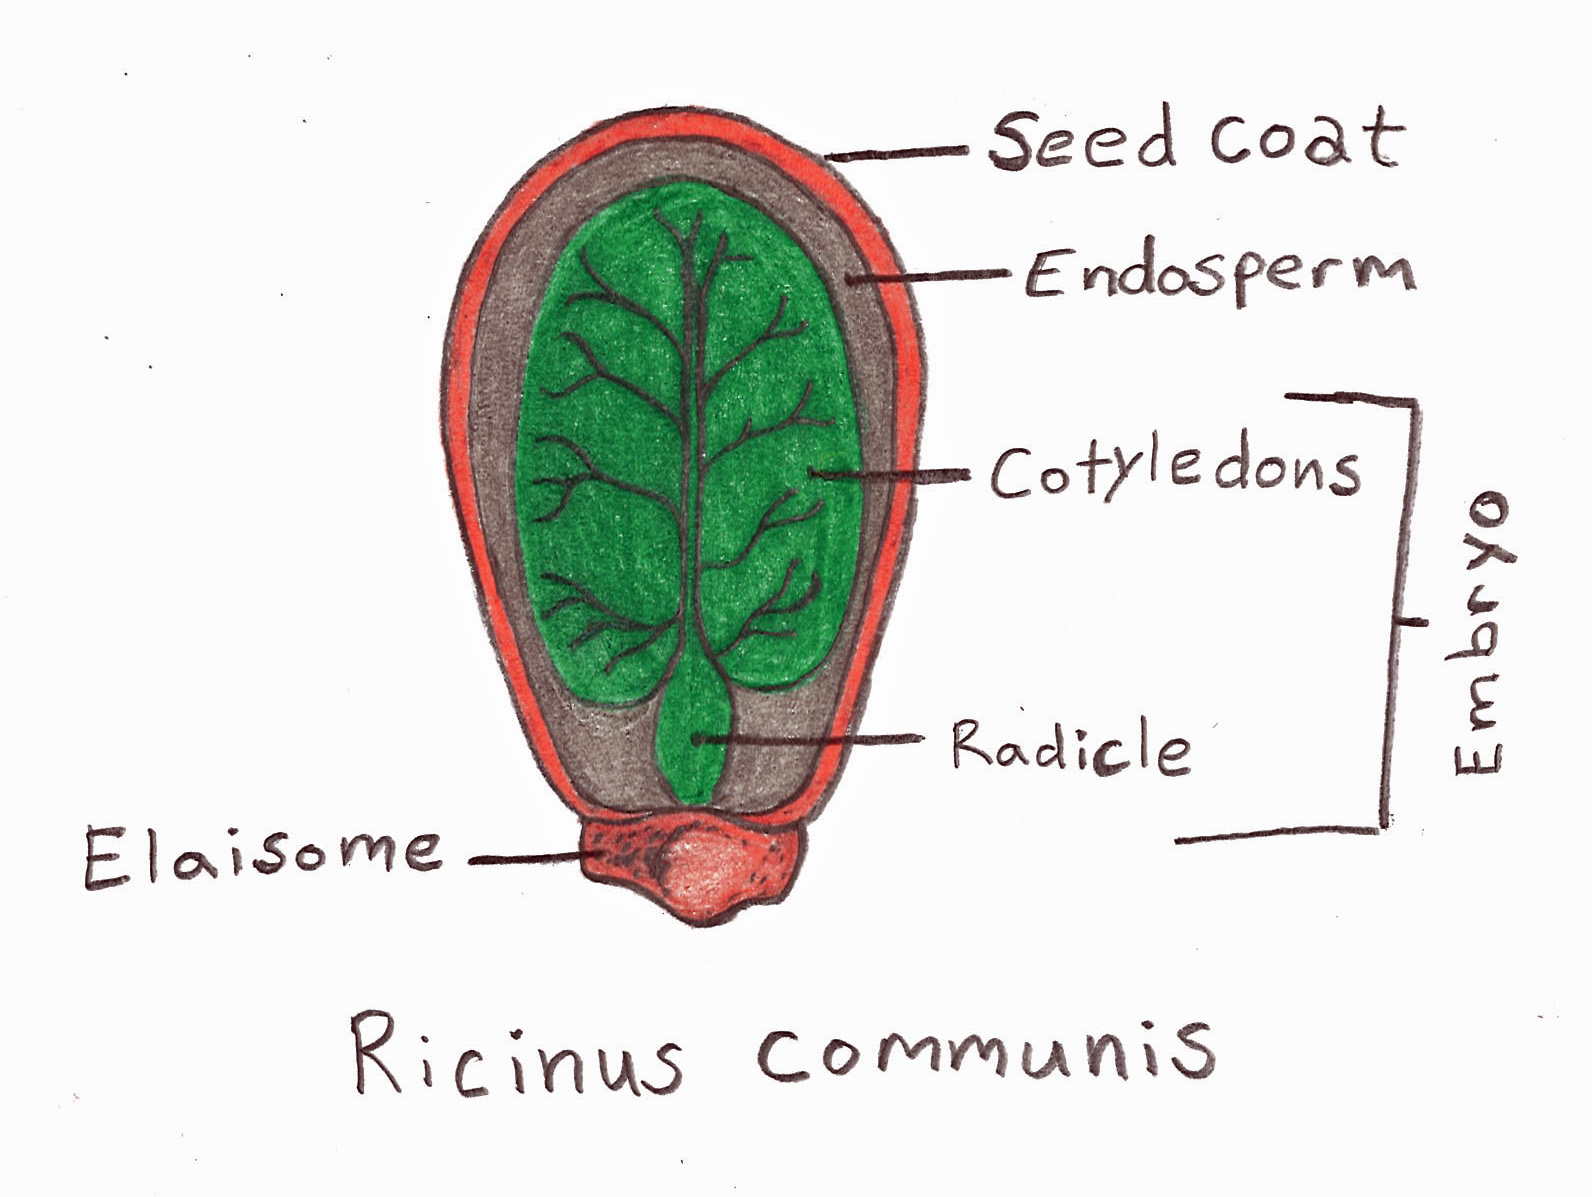 Seed coat
Endosperm
Cotyledons
Embryo
Radicle
Elaisome
Ricinus communis